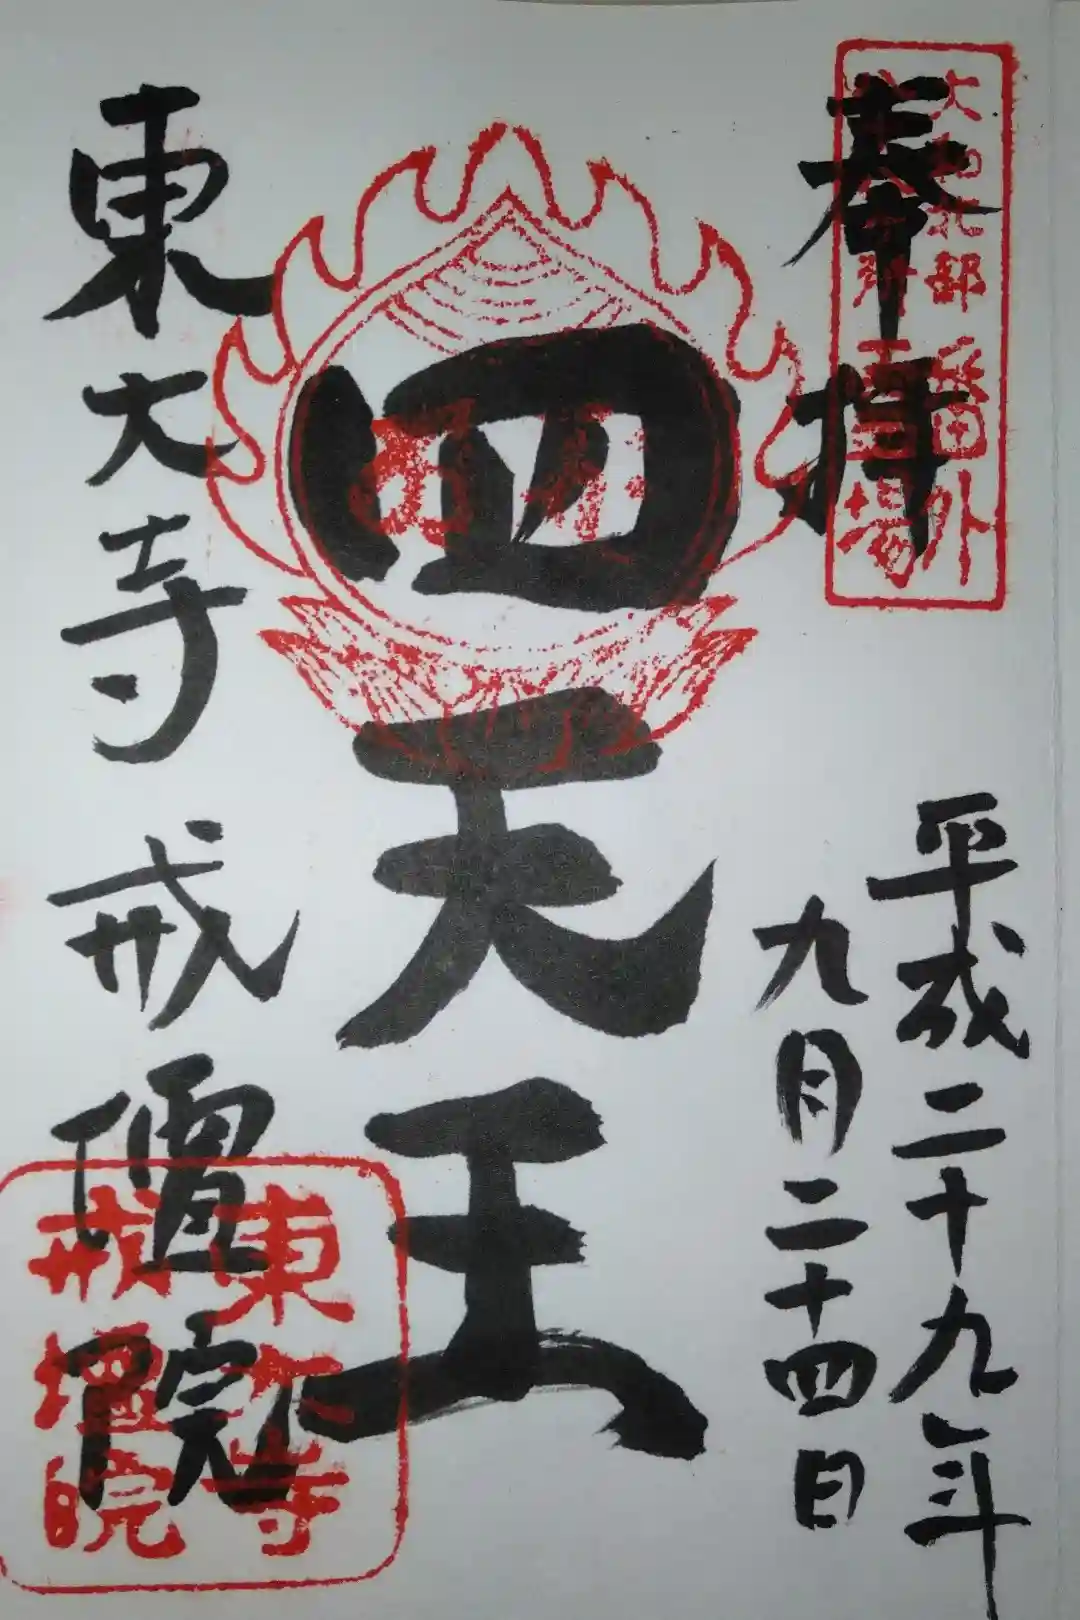 奉拝
平成二十九年
九月二十四日
四天王
東大寺戒壇院
大和北部番外
場
東大寺
戒壇院